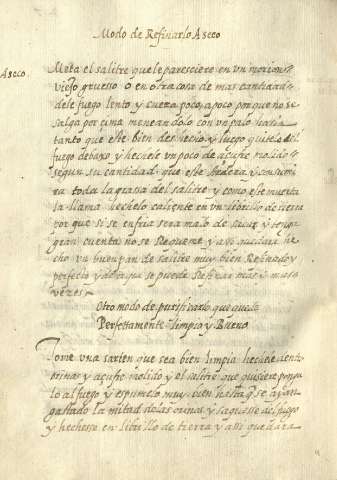 Modo de Refinarlo A seco
A seco.
Meta el salitre que le pareсciere en vn morion
viejo grueso o en otra cosa de mas cantidad
dele fuego lento y cueza poco a poco por que no se
salga por cima meneandolo con vn palo hasta
tanto que este bien deshecho y luego quitele del
fuego debaxo y hechele vn poco de açufre molido
segun su cantidad que este hedera y consumira
toda la grasa del salitre y como este muerta
la llama hechelo caliente en vn librillo de tierra
por que si se enfria sera malo de sacar y tenga
gran cuenta no se queme y assi quedara hecho
vn buen pan de salitre muy bien Refinado y
perfecto y desta se puede Refinar mas
vezes
Otro modo de purificarlo que queda
Perfettamente limpia y Bueno
Tome vna sarten que sea bien limpia hechele
orinas y açufre molido y el salitre que quisiere pongalo
al fuego y espumelo muy bien hasta q se ayan
gastado la mitad de las orinas y saquese del fuego
y hechesse en librillo de tierra y assi quedara